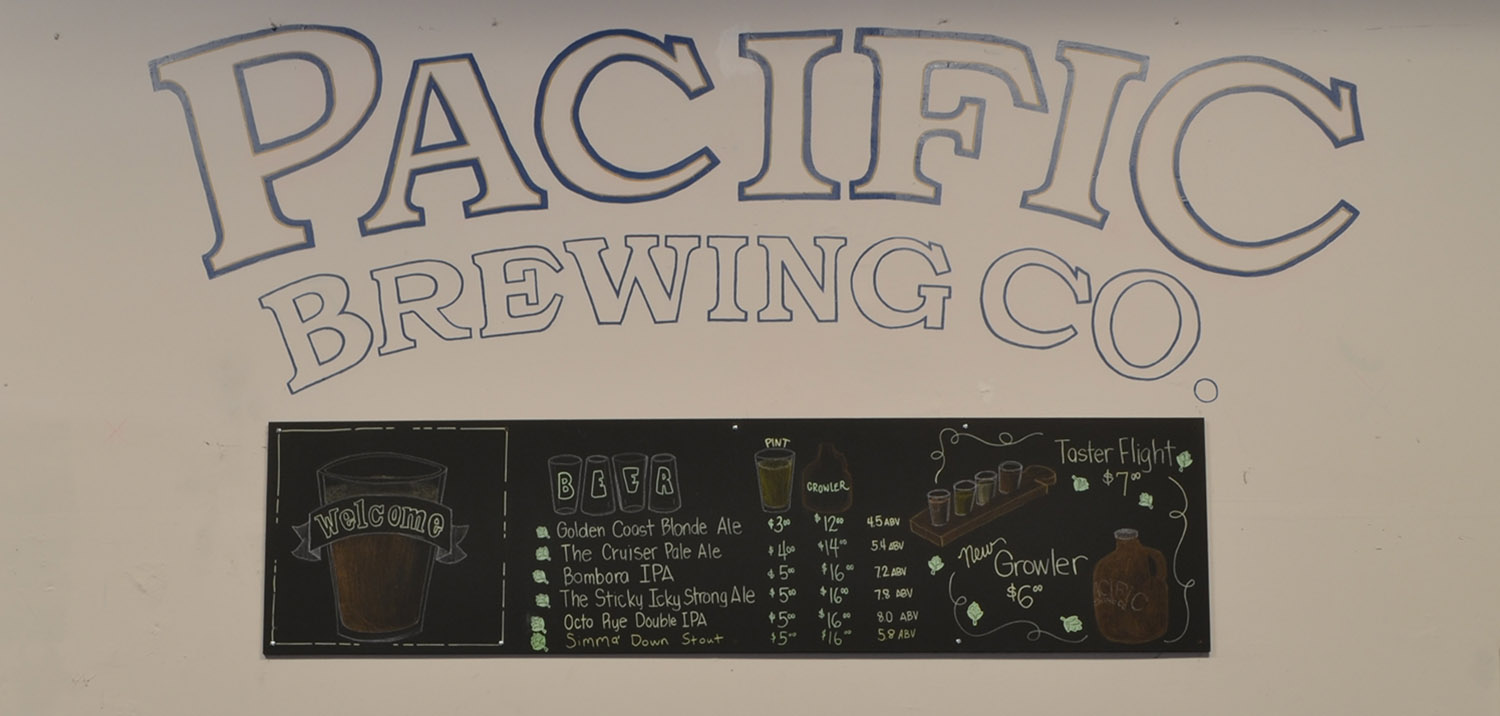 PACIFIC
BREWING CO.
Welcome
BEER
PINT
GROWLER
Golden Coast Blonde Ale $3⁰⁰ $12⁰⁰ 4.5 ABV
The Cruiser Pale Ale $4⁰⁰ $14⁰⁰ 5.4 ABV
Bombora IPA $5⁰⁰ $16⁰⁰ 7.2 ABV
The Sticky Icky Strong Ale $5⁰⁰ $16⁰⁰ 7.8 ABV
Octo Rye Double IPA $5⁰⁰ $16⁰⁰ 8.0 ABV
Simma' Down Stout $5⁰⁰ $16⁰⁰ 5.8 ABV
Taster Flight
$7⁰⁰
New
Growler
$6⁰⁰